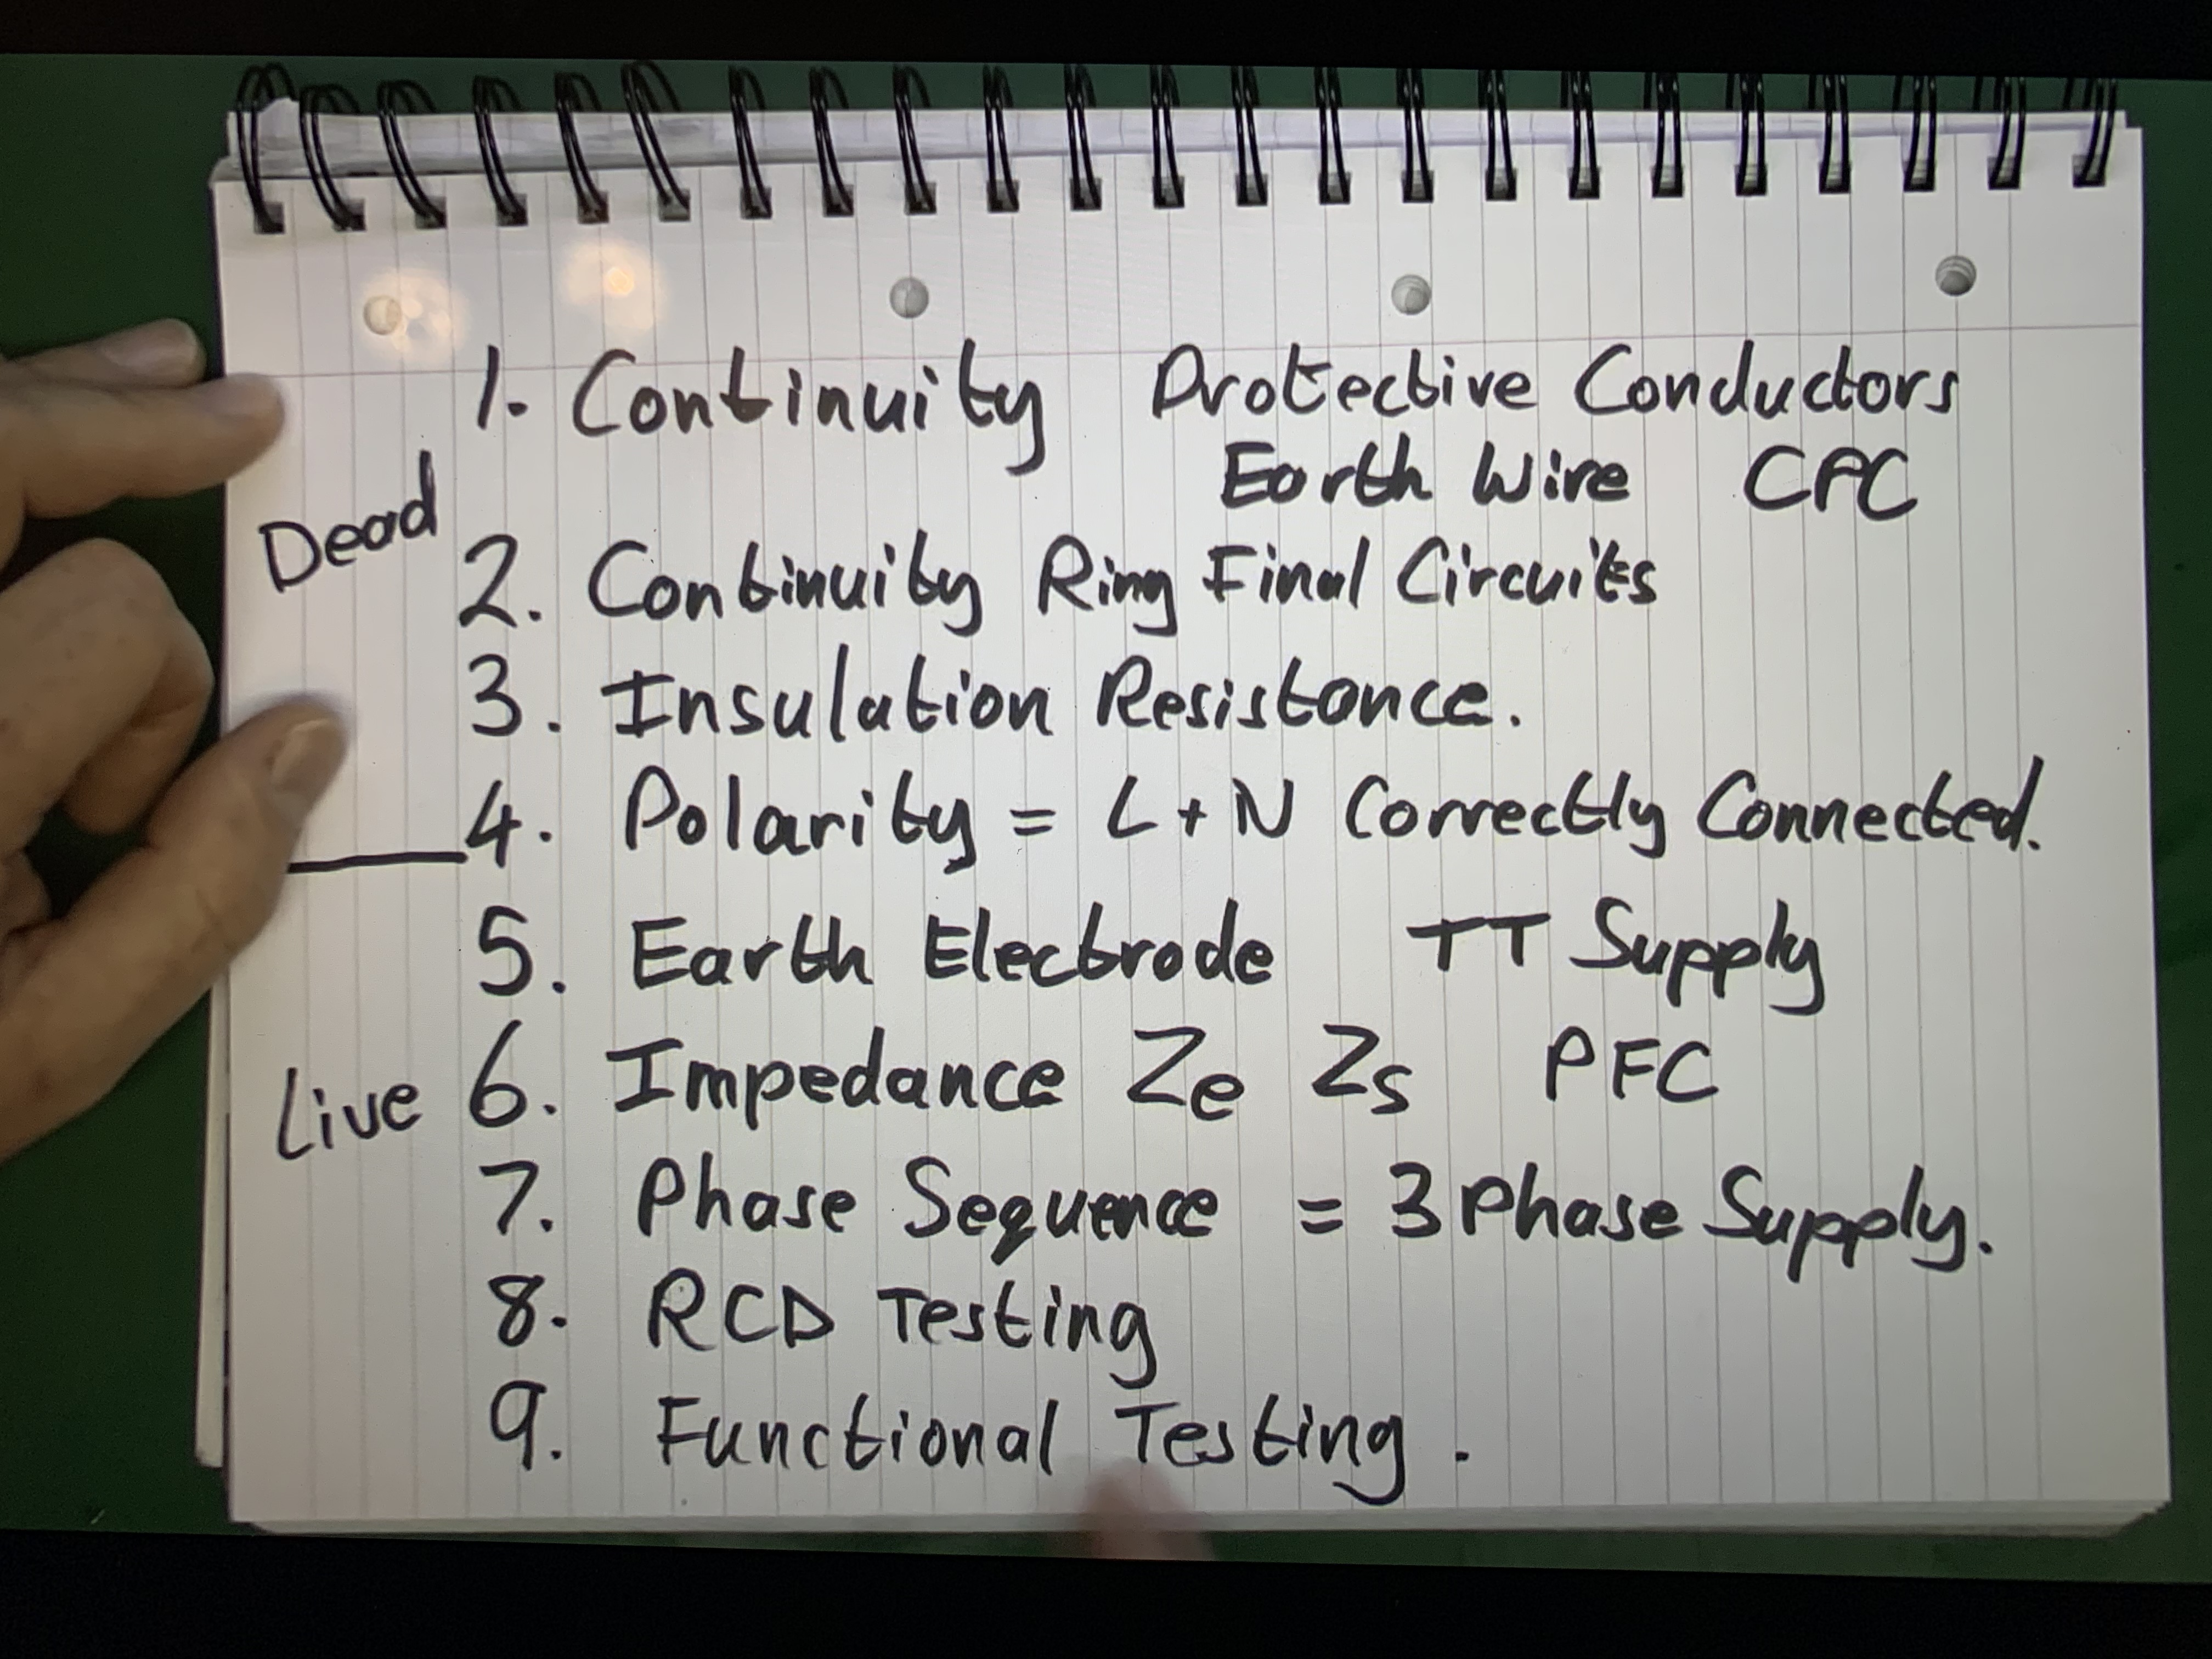 1. Continuity Protective Conductors
Earth Wire CPC
Dead
2. Continuity Ring Final Circuits
3. Insulation Resistance.
4. Polarity = L + N Correctly Connected.
5. Earth Electrode TT Supply
Live 6. Impedance Ze Zs PFC
7. Phase Sequence = 3 Phase Supply.
8. RCD Testing
9. Functional Testing.